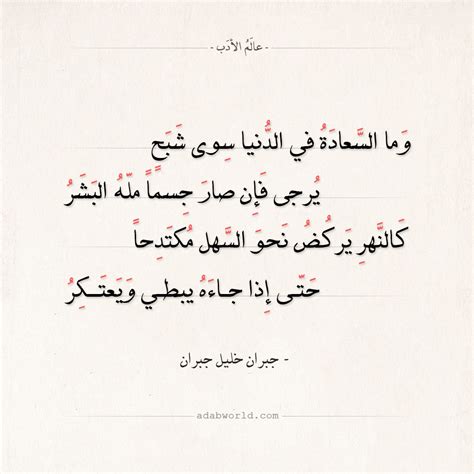 - عالَمُ الأدَب -
وَما السَّعادَةُ في الدُّنيا سِوى شَبَحٍ
يُرجى فَإِن صارَ جِسماً مَلّهُ البَشَرُ
كَالنَّهرِ يَركُضُ نَحوَ السَّهلِ مُكتَدِحاً
حَتّى إِذا جاءَهُ يبطي وَيَعتَكِرُ
- جبران خليل جبران
adabworld.com